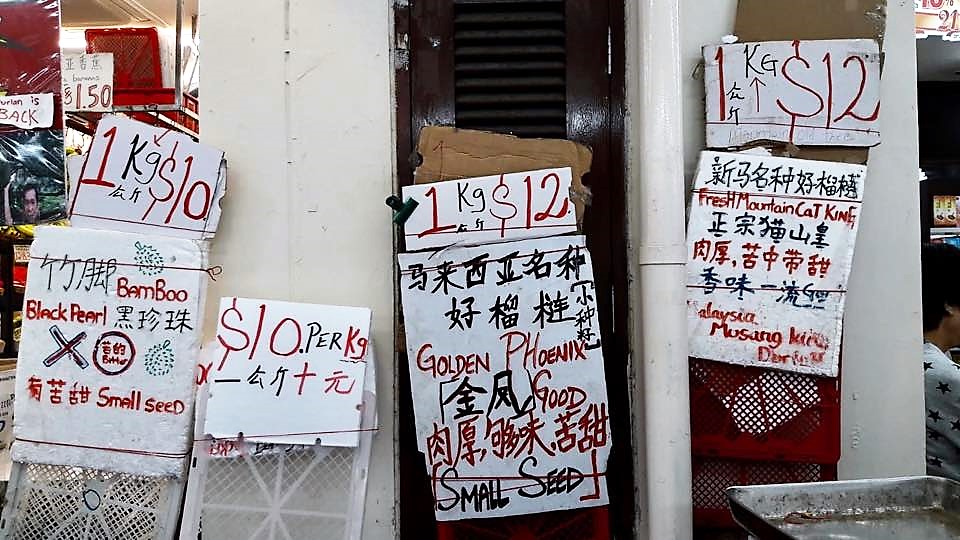 BACK
$1.50
1 Kg $10
公斤
竹脚 BamBoo
Black Pearl 黑珍珠
苦的
Bitter
有苦甜 Small seeD
$10. PER Kg
一公斤十元
1 Kg $12.
公斤
马来西亚名种
好榴梿
小种籽
GOLDEN PHoenix
「金凤」GOOD
肉厚,够味,苦甜
「SMALL SEED」
1 KG $12
公斤
新马名种好榴梿
FresH Mountain CaT KING
正宗猫山皇
肉厚,苦中带甜
香味一流
Malaysia
Musang king